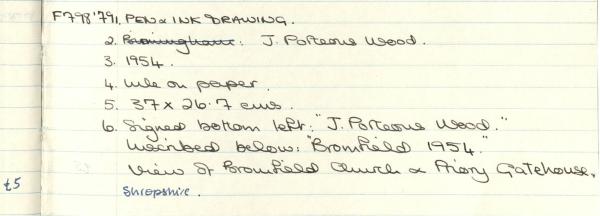 F798'791. PEN & INK DRAWING.
2. Birmingham: J. Porteous Wood.
3. 1954.
4. Ink on paper.
5. 37 x 26.7 cms.
6. Signed bottom left: "J. Porteous Wood."
Inscribed below: "Bromfield 1954."
View of Bromfield Church & Priory Gatehouse,
£5 Shropshire.